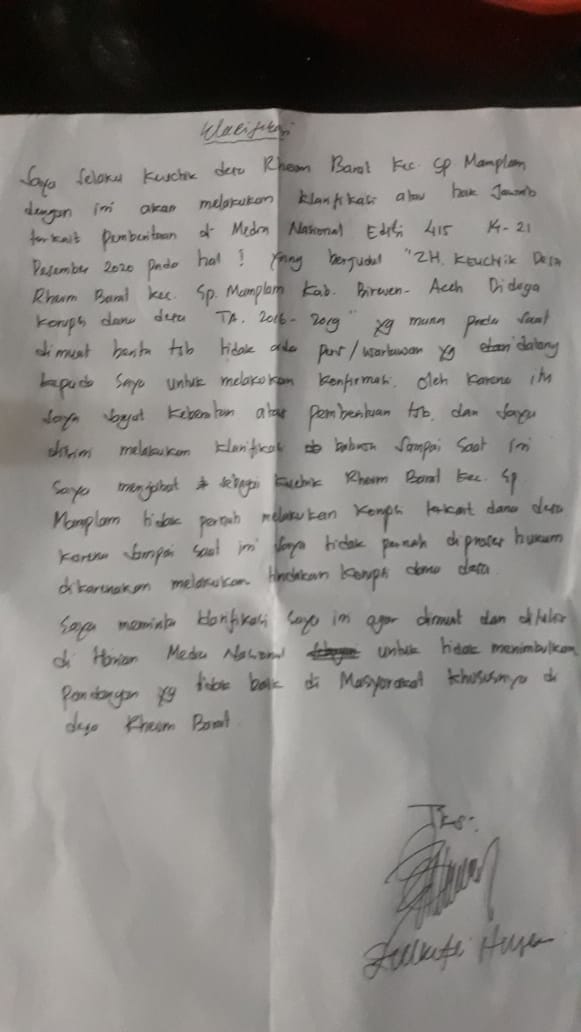 Klarifikasi
Saya Selaku Keuchik desa Rheum Barat Kec. Sp Mamplam
dengan ini akan melakukan klarifikasi atau hak Jawab
terkait Pemberitaan di Media Nasional Edisi 415 14-21
Desember 2020 pada hal 7 Yang berjudul "ZH. Keuchik Desa
Rheum Barat kec. Sp. Mamplam Kab. Bireuen - Aceh Diduga
Korupsi dana desa TA. 2016-2019" yg mana pada saat
dimuat berita tsb tidak ada pers/wartawan yg datang
kepada saya untuk melakukan konfirmasi. Oleh karena itu
saya sangat Keberatan atas Pemberitaan tsb. dan saya
disini melakukan klarifikasi bahwa sampai saat ini
Saya menjabat sebagai Keuchik Rheum Barat Kec. Sp.
Mamplam tidak pernah melakukan Korupsi terkait dana desa
karena sampai saat ini saya tidak pernah diproses hukum
dikarenakan melakukan tindakan Korupsi dana desa.
Saya meminta klarifikasi saya ini agar dimuat dan
di Harian Media Nasional untuk tidak menimbulkan
Pandangan yg tidak baik di Masyarakat khususnya di
desa Rheum Barat.